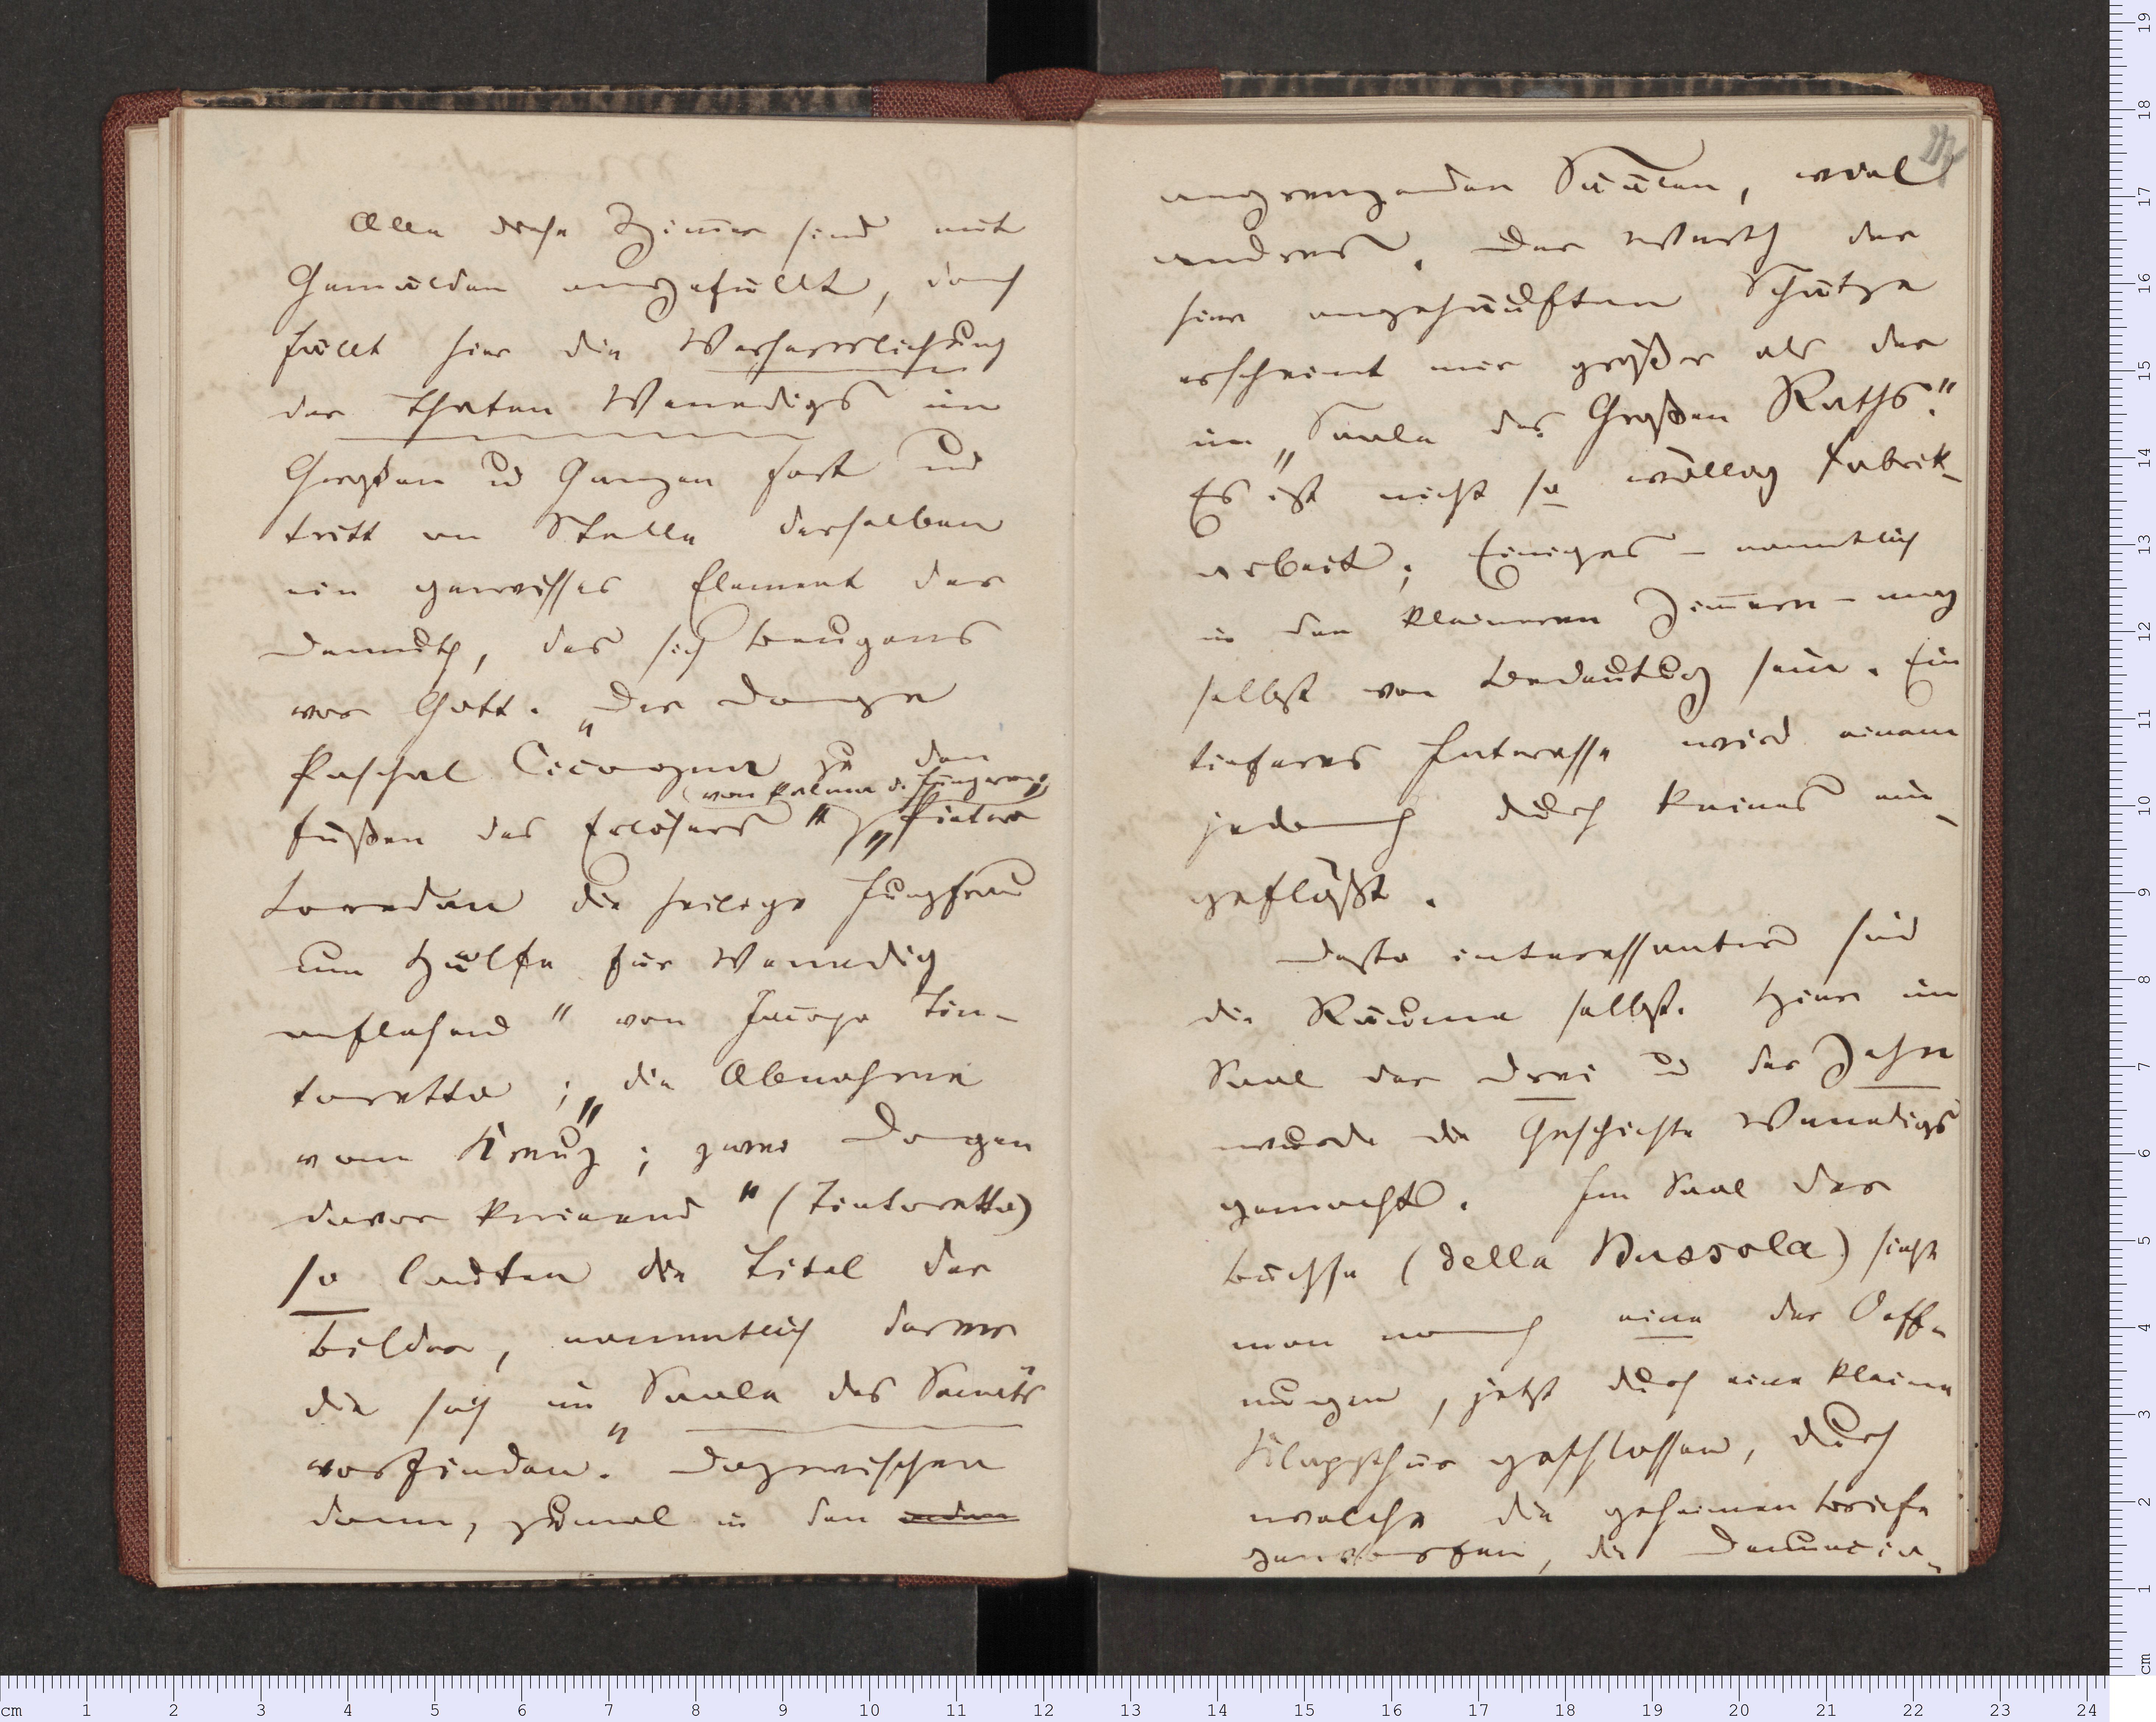 Alle diese Zim̄er sind mit
Gemälden angefüllt, doch
fällt hier die Verherrlichung
der Thaten Venedigs im
Großen u Ganzen fort und
tritt an Stelle derselben
ein gewisses Element der
Demuth, des sich Beugens
vor Gott. „Der Doge
Paschal Cicogna zu den
(von Palma d. Jüngeren)
Füßen des Erlösers" „Pietro
Loredan die heilige Jungfrau
um Hülfe für Venedig
anflehend" von Jacopo Tin-
toretto; „die Abnahme
vom Kreuz; zwei Dogen
davor knieend" (Tintoretto)
so lauten die Titel der
Bilder, namentlich derer
die sich im „Saale des Senats
vorfinden." Dazwischen
dann, zumal in den
angrenzenden Säälen, viel
andres. Der Werth der
hier angehäuften Schätze
erscheint mir größer als der
im „Saale des Großen Raths."
Es ist nicht so völlig Fabrik-
arbeit; Einiges – namentlich
in den kleineren Zim̄ern – mag
selbst von Bedeutung sein. Ein
tieferes Interesse wird einem
jedoch durch keines ein-
geflößt.
Desto interessanter sind
die Räume selbst. Hier im
Saal der Drei u der Zehn
wurde die Geschichte Venedigs
gemacht. Im Saal der
Büchse (della Bussola) sieht
man noch eine der Oeff-
nungen, jetzt durch eine kleine
Klappthür geschlossen, durch
welche die geheimen Briefe
geworfen, die Denuncia-